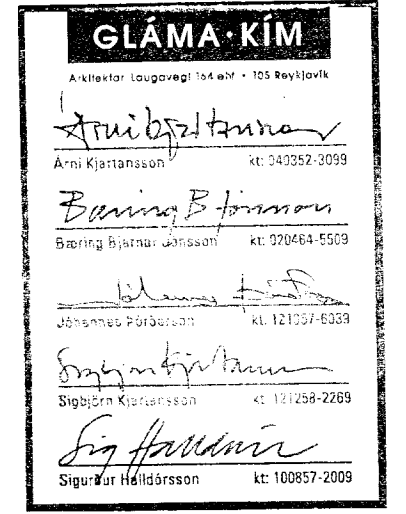 GLÁMA·KÍM
Arkitektar Laugavegi 164 ehf • 105 Reykjavík
Árni Kjartansson
Árni Kjartansson kt: 040352-3099
Bæring B Jónsson
Bæring Bjarnar Jónsson kt: 020464-5509
Jóhannes Þórðarson
Jóhannes Þórðarson kt.
Sigbjörn Kjartansson
Sigbjörn Kjartansson kt: 121258-2269
Sig Halldórs
Sigurður Halldórsson kt: 100857-2009